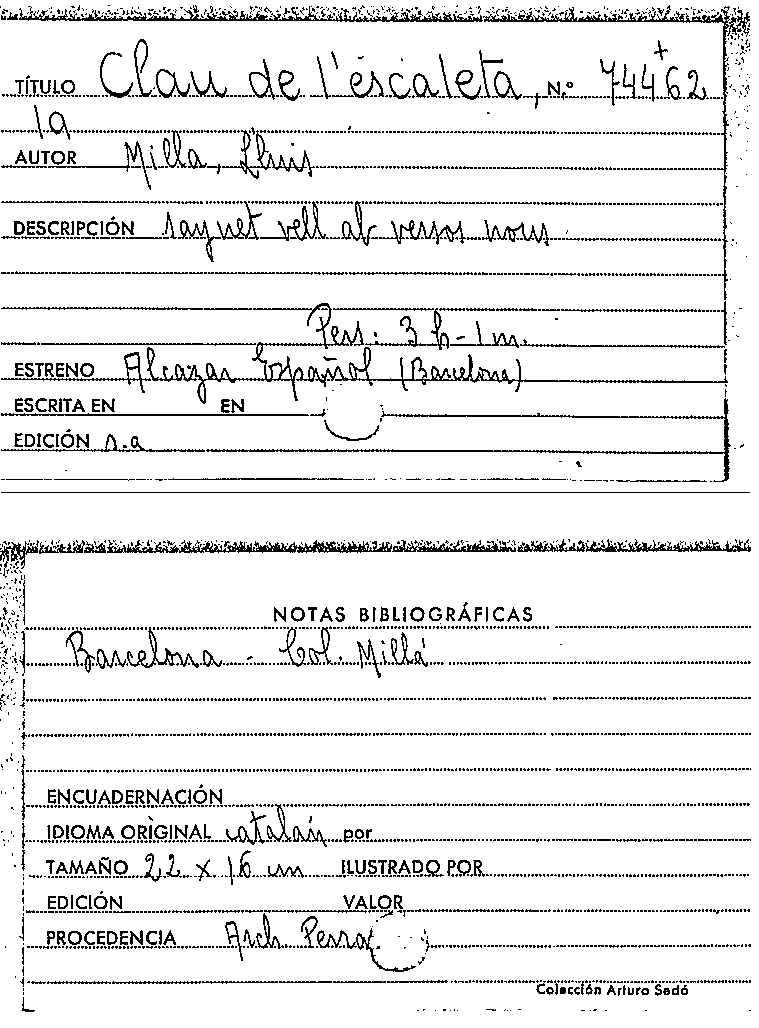 TÍTULO Clau de l'escaleta, N.º 74462
la
AUTOR Millà, Lluis
DESCRIPCIÓN saynet vell ab versos nous
Pers: 3 h - 1 m.
ESTRENO Alcazar Español (Barcelona)
ESCRITA EN EN
EDICIÓN s.a
NOTAS BIBLIOGRÁFICAS
Barcelona - Col. Millá
ENCUADERNACIÓN
IDIOMA ORIGINAL catalán por
TAMAÑO 22 x 16 cm ILUSTRADO POR
EDICIÓN VALOR
PROCEDENCIA Arch.
Colección Arturo Sedó